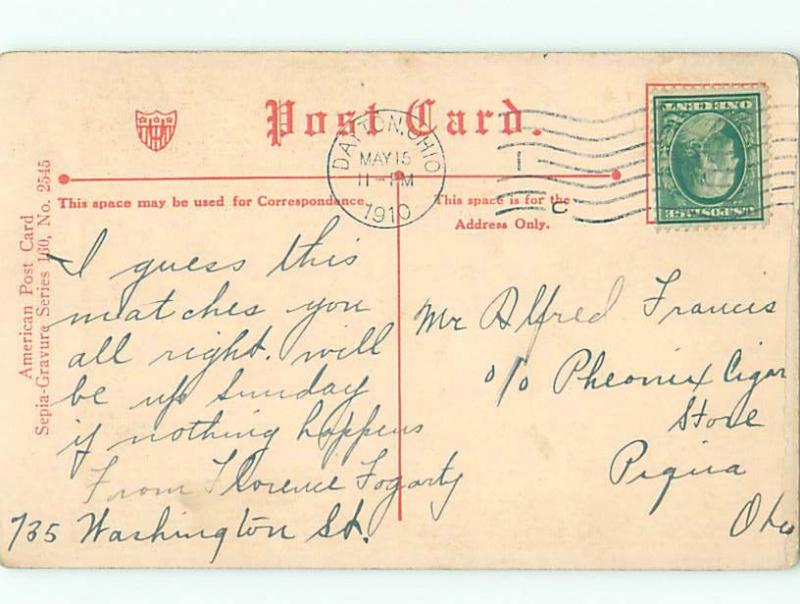 Post Card.
DAYTON, OHIO
MAY 15
11-PM
1910
1
C
ONE CENT
U.S. POSTAGE
This space may be used for Correspondence.
This space is for the
Address Only.
American Post Card
Sepia-Gravure Series 160, No. 2545
I guess this
matches you
all right. will
be up Sunday
if nothing happens
From Florence Fogarty
735 Washington St.
Mr Alfred Francis
c/o Pheonix Cigar
Store
Piqua
Ohio